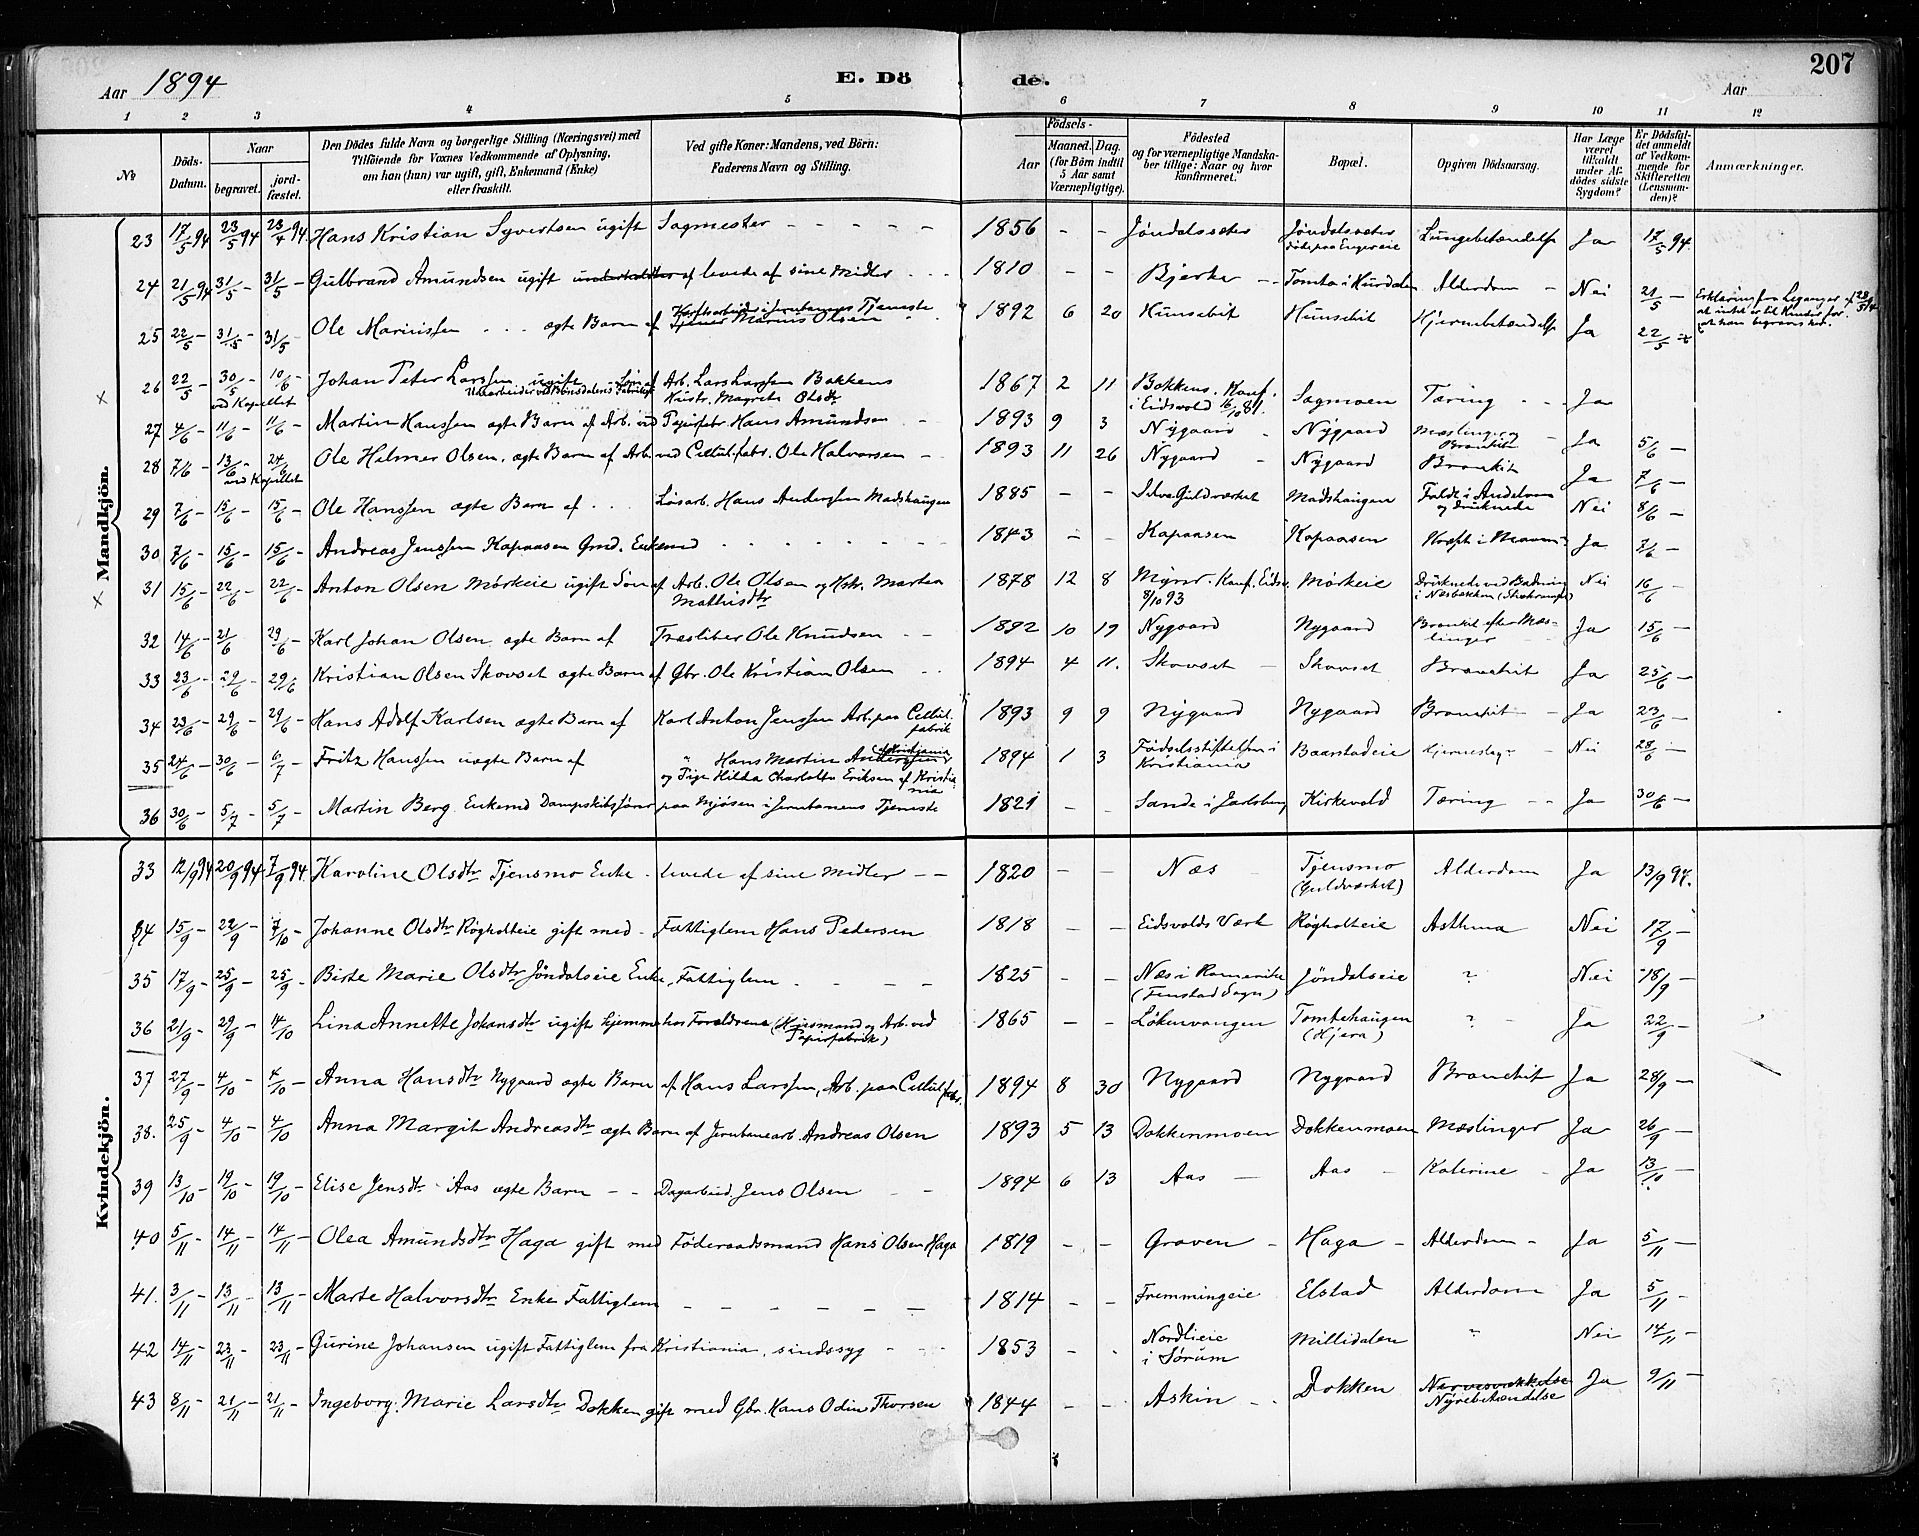 207
Aar 1894
E. Dö
de.
Aar
1 2 3 4 5 6 7 8 9 10 11 12
№
Döds-Datum.
Naar
begravet.
jord-fæstet.
Den Dödes fulde Navn og borgerlige Stilling (Næringsvei) med
Tilföiende for Voxnes Vedkommende af Oplysning,
om han (hun) var ugift, gift, Enkemand (Enke)
eller fraskilt.
Ved gifte Koner: Mandens, ved Börn:
Faderens Navn og Stilling.
Födsels-
Aar
Maaned. Dag.
(for Börn indtil
5 Aar samt
Værnepligtige).
Födested
og for værnepligtige Mandska-
ber tillige: Naar og hvor
konfirmeret.
Bopæl.
Opgiven Dödsaarsag.
Har Læge
været
tilkaldt
under Af-
dödes sidste
Sygdom?
Er Dödsfal-
det anmeldt
af Vedkom-
mende for
Skifteretten
(Lensman-
den)?
Anmærkninger.
Mandkjön.
23 17/5 94 23/5 94 23/4 94 Hans Kristian Syvertsen ugift Sagmester - - - - 1856 - - Jøndalsæter Jøndalsæter Lungebetændelse Ja 17/5 94.
døde paa Engereie
24 21/5 94 31/5 - 31/5 Gulbrand Amundsen ugift levede af sine Midler 1810 - - Bjerke - Tomta i Hurdalen Alderdom - Nei 21/5 -
25 22/5 - 31/5 - 31/5 Ole Mariussen ... ægte Barn af Tjener Marius Olsen 1892 6 20 Hunsebit Hunsebit Hjernebetændelse Ja 22/5
26 22/5 - 30/5 - 10/6 Johan Peter Larssen ugift Søn af Arb. Lars Larssen Bakkens 1867 2 11 Bakkens. Konf. Sagmoen Tæring - - Ja
ved Kapellet
Kustr. Magrete Olsdtr i Eidsvold 16/10 81.
27 4/6 - 11/6 - 11/6 Martin Hanssen ægte Barn af Arb. ved Papirfabr. Hans Amundsen - 1893 9 3 Nygaard - Nygaard Mæslinger og Bronkit - Ja 5/6 -
28 7/6 - 13/6 - 24/6 Ole Helmer Olsen, ægte Barn af Arb. ved Cellul.fabr. Ole Halvorsen - 1893 11 26 Nygaard - Nygaard Bronkit Ja 7/6 -
ved Kapellet
29 7/6 - 15/6 - 15/6 Ole Hanssen ægte Barn af ... Løsarb. Hans Anderssen Madshaugen 1885 - - Guldværket Madshaugen Faldt i Andelven og druknede Nei 8/6 -
30 7/6 - 15/6 - 15/6 Andreas Jenssen Kapaasen Gmd. Enkemd - - - 1843 - - Kapaasen Kapaasen Kræft i Maven Ja 7/6 -
31 15/6 - 22/6 - 22/6 Anton Olsen Mørkeie ugift Søn af Arb. Ole Olsen og Kstr. Martea 1878 12 8 Myrer. Konf. Eidsv. Mørkeie Druknede ved Badning Nei 16/6 -
Mathisdtr 8/10 93
32 14/6 - 21/6 23/6 - Karl Johan Olsen ægte Barn af Træsliber Ole Knudsen - - 1892 10 19 Nygaard Nygaard Bronkit efter Mæslinger - Ja 15/6 -
33 23/6 - 29/6 - 29/6 Kristian Olsen Skovset ægte Barn af Gbr. Ole Kristian Olsen 1894 4 11. Skovset - Skovset Bronchit Ja 25/6 -
34 23/6 - 29/6 - 29/6 - Hans Adolf Karlsen ægte Barn af Karl Anton Jenssen Arb. paa Cellul. fabrik 1893 9 9 Nygaard Nygaard Bronchit - Ja 23/6 -
35 24/6 - 30/6 - 6/7 Fritz Hanssen uægte Barn af " Hans Martin Anderssen 1894 1 3 Fødselsstiftelsen i Kristiania Baarstadeie Hjerneslag - Nei 28/6 -
og Pige Hilda Charlotte Eriksen af Kristiania
36 30/6 - 5/7 - 5/7 Martin Berg. Enkemd Dampskibsfører paa Mjøsen i Jernbanens Tjeneste 1821 - - Sande i Jarlsberg Kirkevold Tæring - - Ja 30/6 -
Erklæring fra Leganger af 28/5 94
at intet er til Hinder for
at han begraves her.
Kvindekjön.
33 12/9 94 20/9 94 7/9 94. Karoline Olsdtr Tjensmo Enke - levede af sine Midler - - 1820 - - Næs Tjensmo (Guldværket) Alderdom Ja 13/9 94.
34 15/9 - 22/9 - 7/10 - Johanne Olsdtr Røgholteie gift med - Fattiglem Hans Pedersen 1818 - - Eidsvolds Værk Røgholteie Asthma Nei 17/9 -
35 17/9 - 25/9 - 25/9 - Birte Marie Olsdtr Jøndalseie Enke, Fattiglem - - - 1825 - - Næs i Romerike (Fenstad Sogn) Jøndalseie ? Nei 18/9 -
36 21/9 - 29/9 - 14/10 Lina Annette Johansdtr ugift hjemme hos Forældrene (Husmand og Arb. ved Papirfabrik) 1865 - - Løkenvangen Tomtehaugen (Hjera) ? - Ja 22/9 -
37 27/9 - 4/10 - 4/10 - Anna Hansdtr Nygaard ægte Barn af Hans Larssen, Arb. paa Cellul.fabr. 1894 8 30 Nygaard Nygaard Bronchit Ja 28/9 -
38. 25/9 - 4/10 - 4/10 - Anna Margit Andreasdtr ægte Barn af Jernbanearb. Andreas Olsen 1893 5 13 Dokkenmoen Dokkenmoen Mæslinger Ja 26/9 -
39 13/10 - 19/10 - 19/10 - Elise Jensdtr Aas ægte Barn - - Dagarbeid. Jens Olsen - - 1894 6 13 Aas - Aas - Katerine - Ja 13/10 -
40 5/11 - 14/11 - 14/11 - Olea Amundsdtr Haga gift med Föderaadsmand Hans Olsen Haga 1819 - - Graven - Haga - Alderdom - Ja 5/11 -
41. 3/11 - 13/11 - 13/11 - Marte Halvorsdtr Enke Fattiglem - - - - - - 1814 - - Fremmingeie Elstad Alderdom Ja 5/11 -
42 14/11 - 23/11 - 23/11 - Gurine Johansen ugift Fattiglem fra Kristiania, sindssyg - - - 1853 - - Nordlieie i Sørum Millidalen " Nei 14/11 -
43 8/11 - 21/11 - 21/11 - Ingeborg Marie Larsdtr Dokken gift med Gbr. Hans Odin Thorsen 1844 - - Askin - Dokken Nervesvækkelse Nyrebetændelse Ja 9/11 -